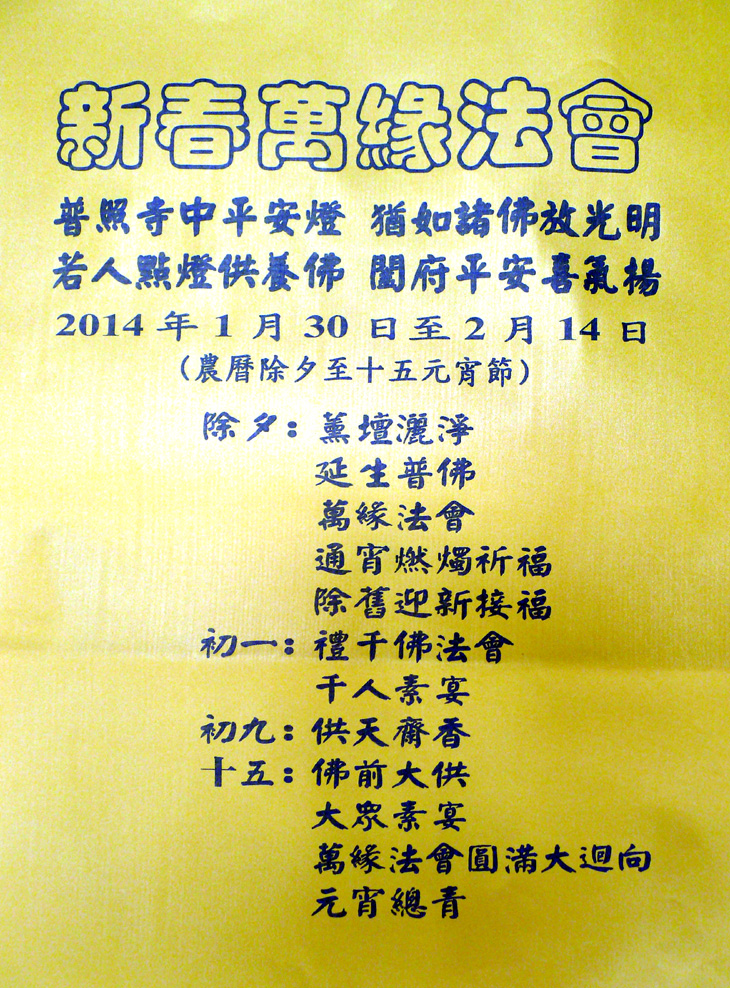 新春萬緣法會
普照寺中平安燈 猶如諸佛放光明
若人點燈供養佛 闔府平安喜氣揚
2014 年 1 月 30 日至 2 月 14 日
（農曆除夕至十五元宵節）
除夕：薰壇灑淨
延生普佛
萬緣法會
通宵燃燭祈福
除舊迎新接福
初一：禮千佛法會
千人素宴
初九：供天齋香
十五：佛前大供
大眾素宴
萬緣法會圓滿大迴向
元宵總青